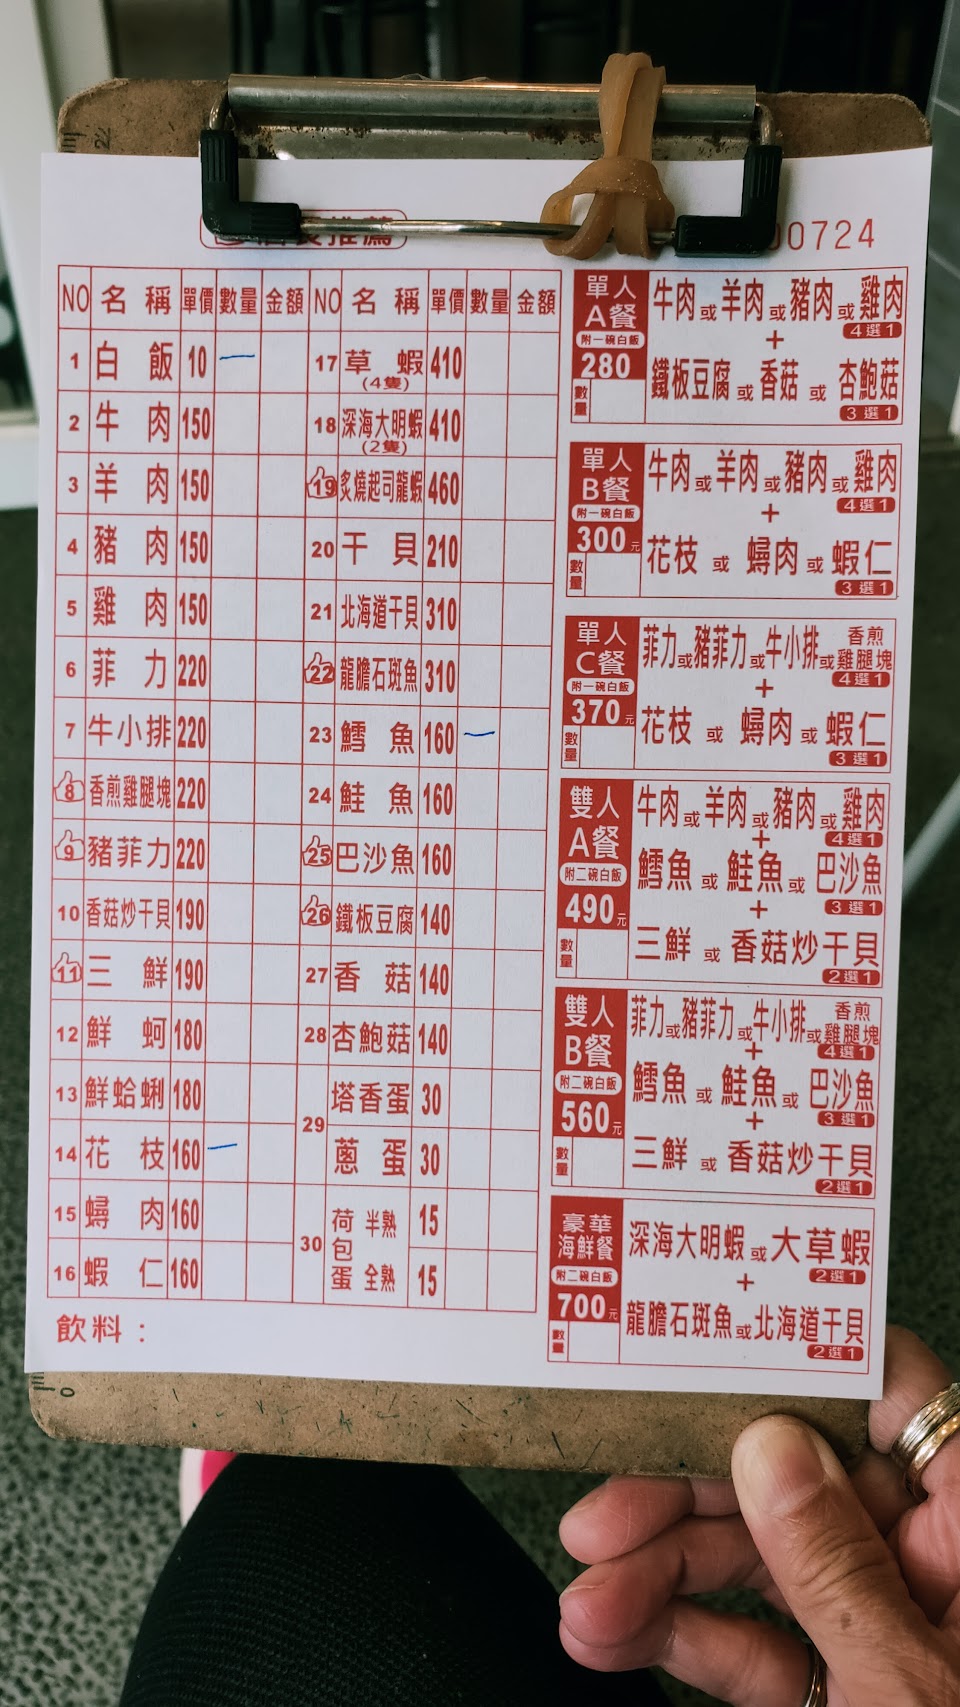 店長推薦
00724
NO 名稱 單價 數量 金額 NO 名稱 單價 數量 金額
1 白飯 10 一 17 草蝦(4隻) 410
2 牛肉 150 18 深海大明蝦(2隻) 410
3 羊肉 150 19 炙燒起司龍蝦 460
4 豬肉 150 20 干貝 210
5 雞肉 150 21 北海道干貝 310
6 菲力 220 22 龍膽石斑魚 310
7 牛小排 220 23 鱈魚 160 一
8 香煎雞腿塊 220 24 鮭魚 160
9 豬菲力 220 25 巴沙魚 160
10 香菇炒干貝 190 26 鐵板豆腐 140
11 三鮮 190 27 香菇 140
12 鮮蚵 180 28 杏鮑菇 140
13 鮮蛤蜊 180 29 塔香蛋 30
14 花枝 160 一 蔥蛋 30
15 蟳肉 160 30 荷包蛋 半熟 15
16 蝦仁 160 全熟 15
飲料：
單人A餐
附一碗白飯
280
數量
牛肉或羊肉或豬肉或雞肉
4選1
+
鐵板豆腐或香菇或杏鮑菇
3選1
單人B餐
附一碗白飯
300元
數量
牛肉或羊肉或豬肉或雞肉
4選1
+
花枝或蟳肉或蝦仁
3選1
單人C餐
附一碗白飯
370元
數量
菲力或豬菲力或牛小排或香煎雞腿塊
4選1
+
花枝或蟳肉或蝦仁
3選1
雙人A餐
附二碗白飯
490元
數量
牛肉或羊肉或豬肉或雞肉
4選1
+
鱈魚或鮭魚或巴沙魚
3選1
+
三鮮或香菇炒干貝
2選1
雙人B餐
附二碗白飯
560元
數量
菲力或豬菲力或牛小排或香煎雞腿塊
4選1
+
鱈魚或鮭魚或巴沙魚
3選1
+
三鮮或香菇炒干貝
2選1
豪華海鮮餐
附二碗白飯
700元
數量
深海大明蝦或大草蝦
2選1
+
龍膽石斑魚或北海道干貝
2選1